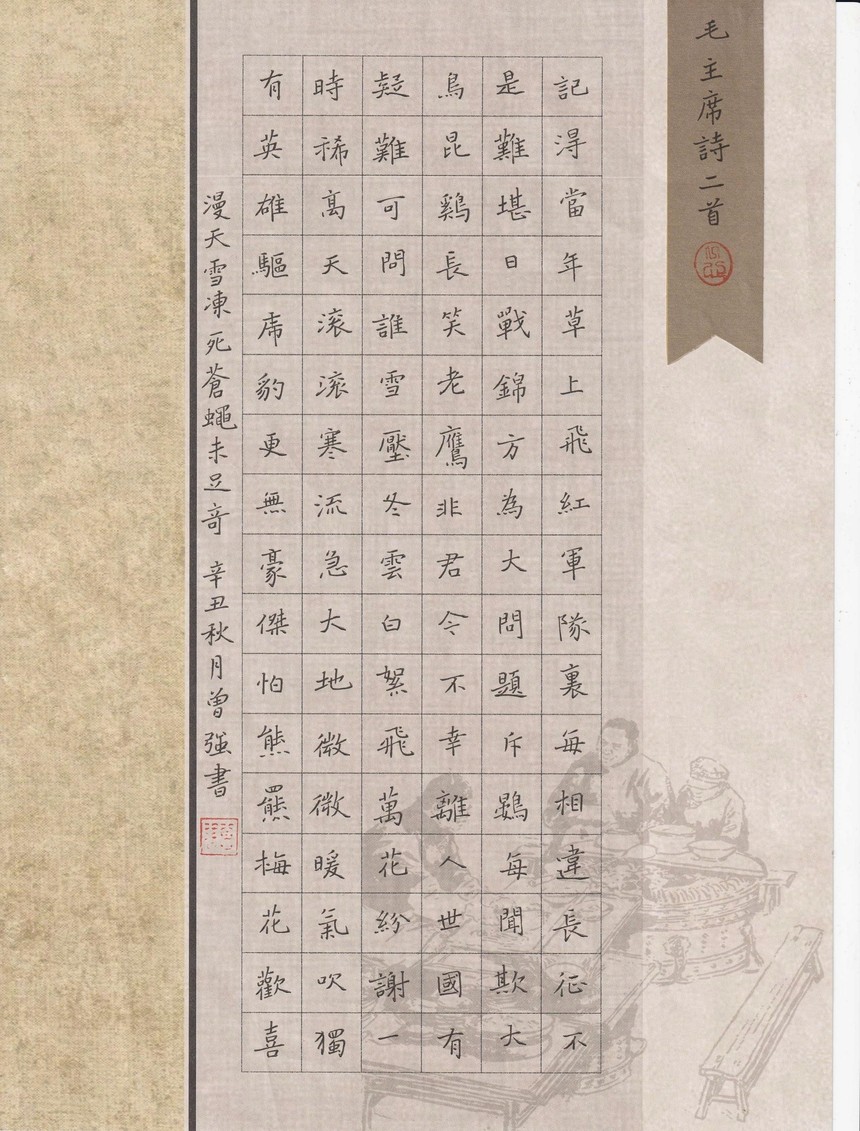 毛主席詩二首
記淂當年草上飛紅軍隊裏每相違長征不
是難堪日戰錦方為大問題斥鷃每聞欺大
鳥昆鷄長笑老鷹非君今不幸離人世國有
疑難可問誰雪壓冬雲白絮飛萬花紛謝一
時稀高天滚滚寒流急大地微微暖氣吹獨
有英雄驅虎豹更無豪傑怕熊羆梅花歡喜
漫天雪凍死蒼蠅未足奇 辛丑秋月曾强書